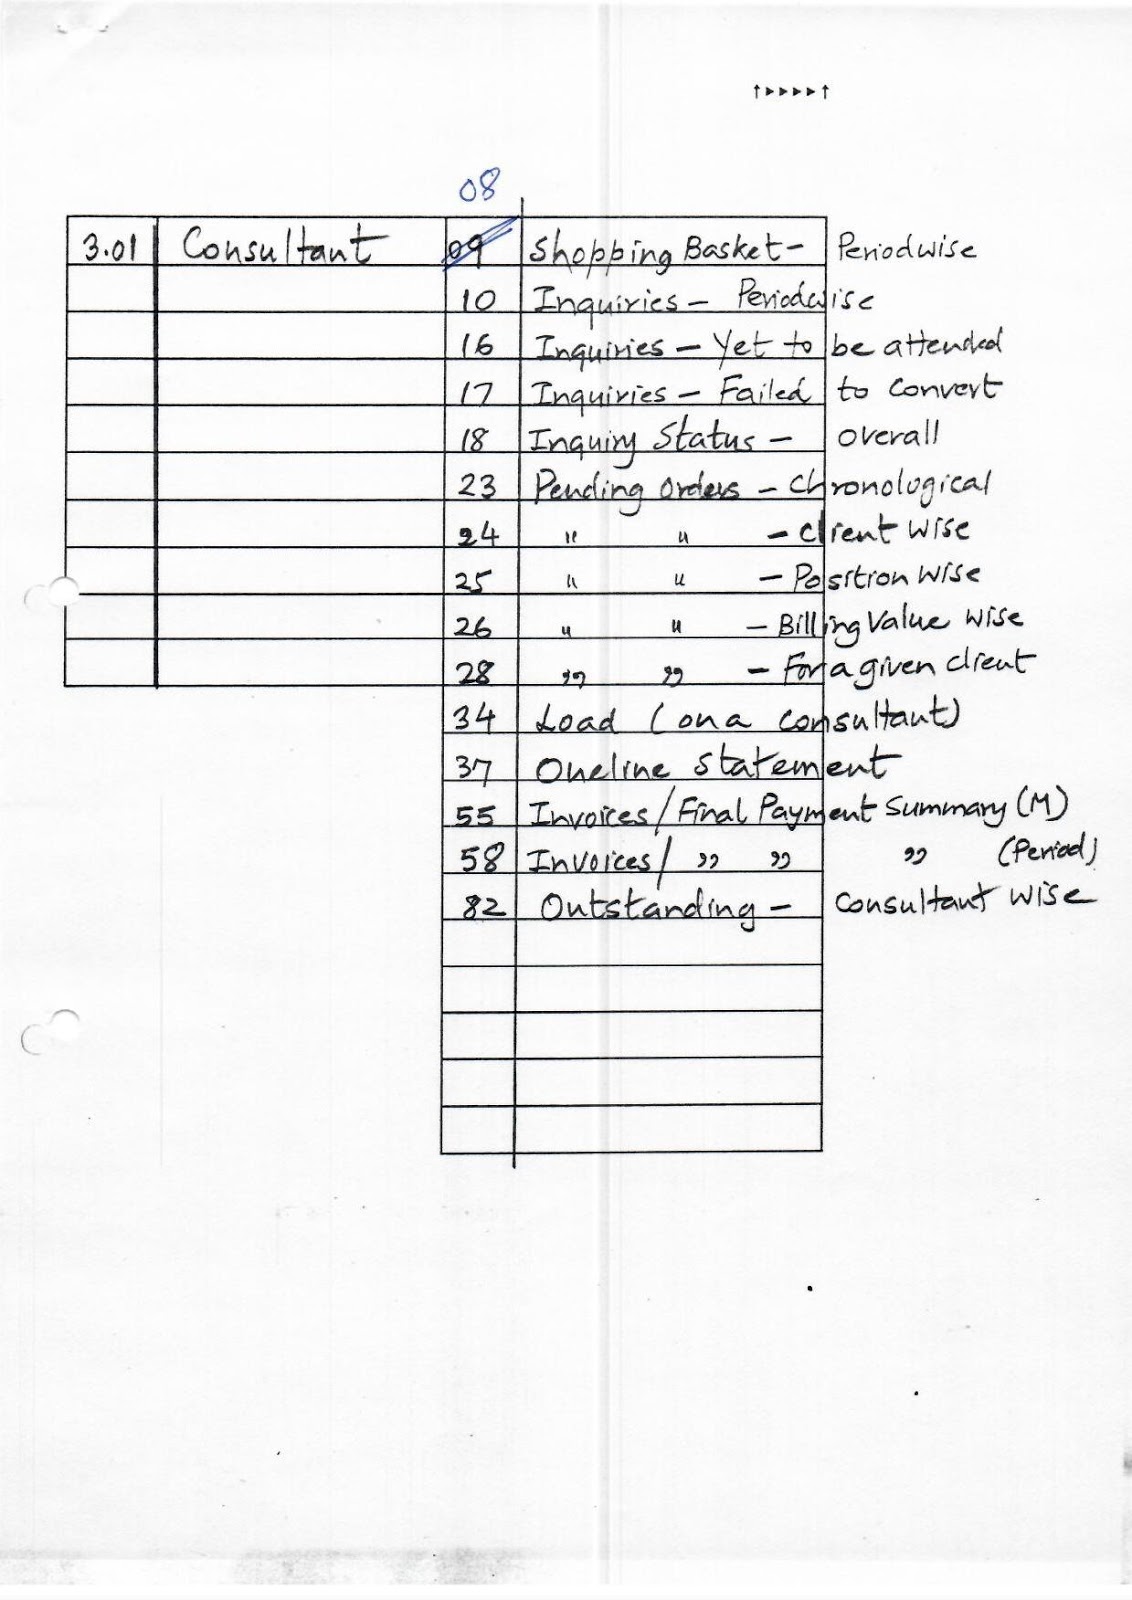 ↑▸▸▸▸↑
08
3.01 Consultant 09 Shopping Basket - Periodwise
10 Inquiries - Periodwise
16 Inquiries - Yet to be attended
17 Inquiries - Failed to Convert
18 Inquiry Status - Overall
23 Pending Orders - Chronological
24 " " - Client Wise
25 " " - Position Wise
26 " " - Billing Value Wise
28 " " - For a given client
34 Load (on a Consultant)
37 Oneline Statement
55 Invoices/Final Payment Summary (M)
58 Invoices/ " " " (Period)
82 Outstanding - Consultant Wise